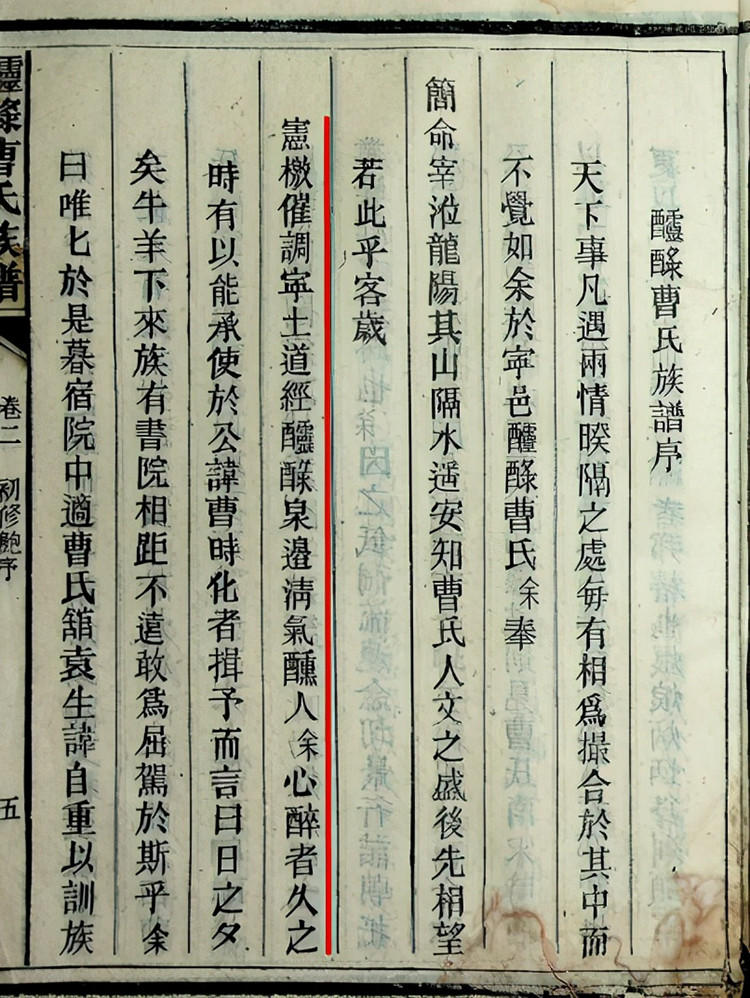 醽醁曹氏族譜序
天下事凡遇兩情暌隔之處每有相爲撮合於其中而
不覺如余於寜邑醽醁曹氏余奉
簡命宰涖龍陽其山隔水遥安知曹氏人文之盛後先相望
若此乎客歲
憲檄催調寜土道經醽醁泉邉淸氣醺人余心醉者久之
時有以能承使於公諱曹時化者揖予而言曰日之夕
矣牛羊下來族有書院相距不遠敢爲屈駕於斯乎余
曰唯匕於是暮宿院中適曹氏舘袁生諱自重以訓族
醽醁曹氏族譜
卷二 初修鮑序
五